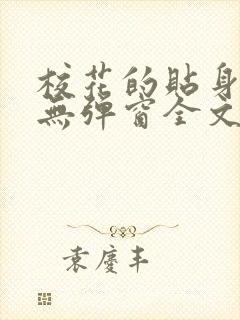 校花的貼身
無彈窗全文
袁慶丰